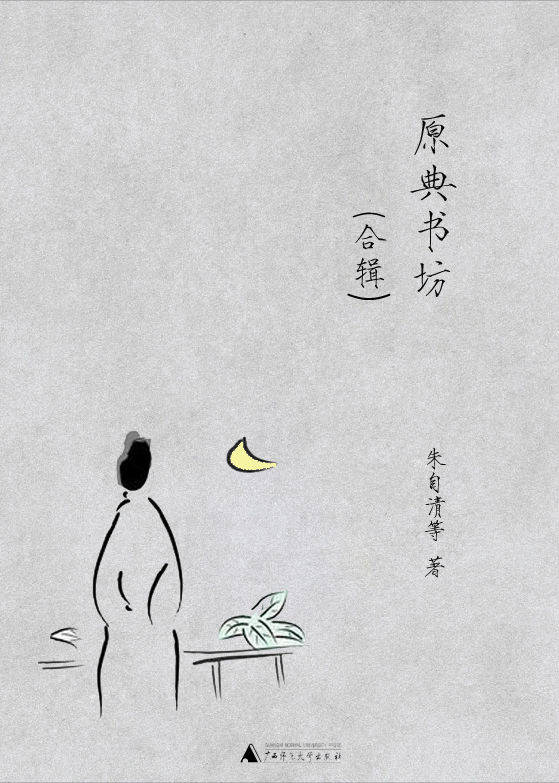 原典书坊
(合辑)
朱自清等 著
GUANGXI NORMAL UNIVERSITY PRESS
广西师范大学出版社